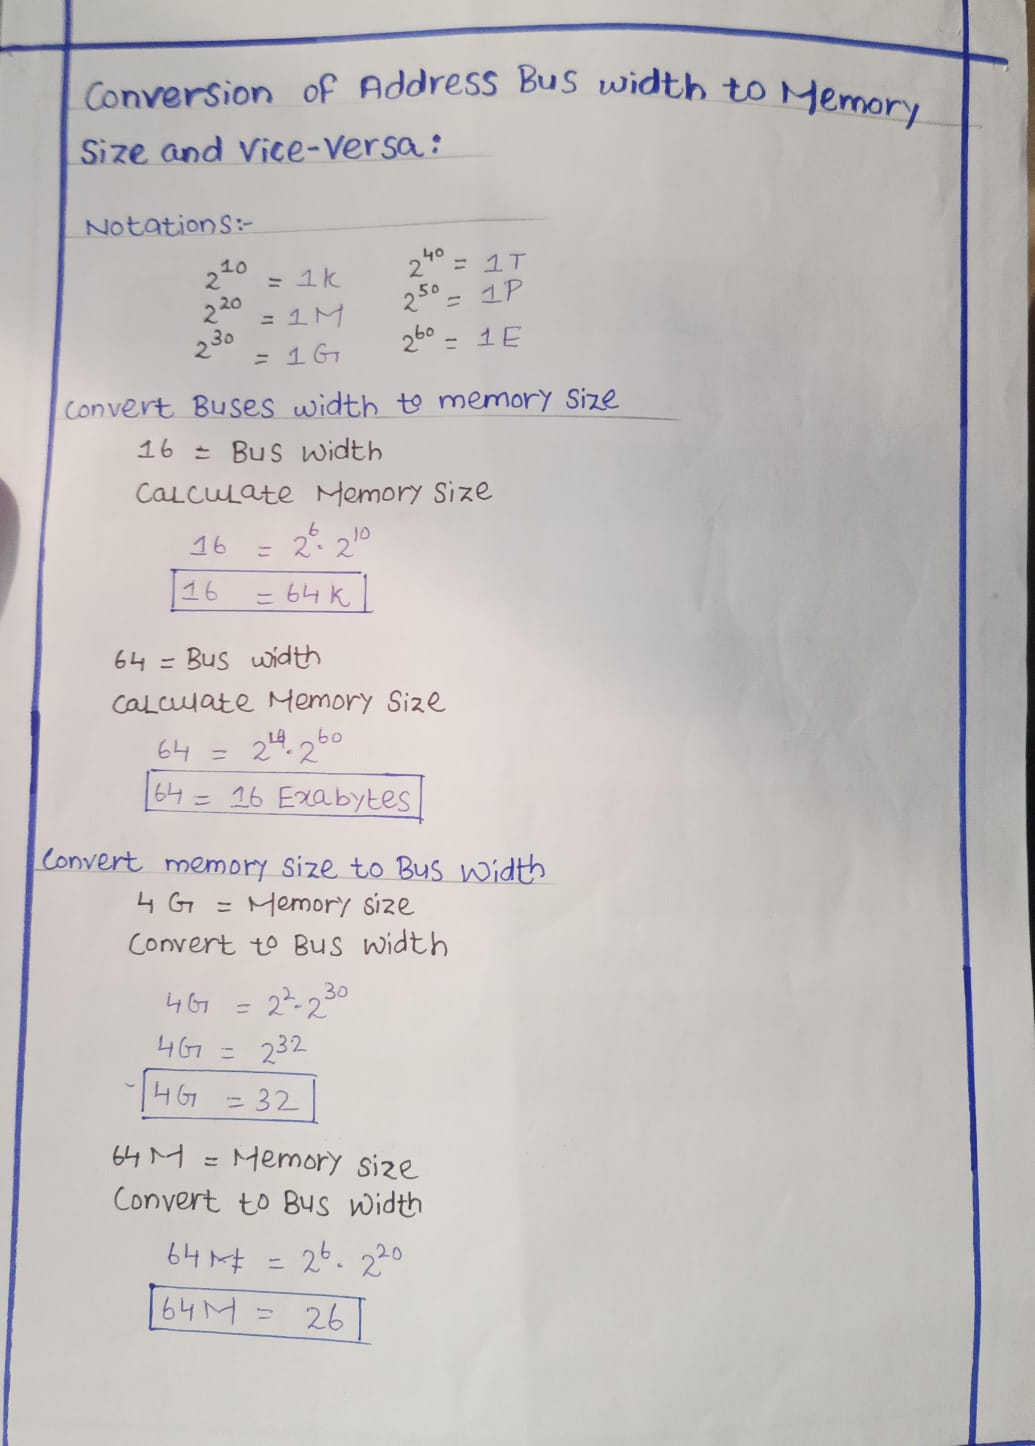 Conversion of Address Bus width to Memory
Size and Vice-Versa:
Notations:-
2^10 = 1K
2^20 = 1M
2^30 = 1G
2^40 = 1T
2^50 = 1P
2^60 = 1E
Convert Buses width to memory size
16 = Bus width
Calculate Memory Size
16 = 2^6 . 2^10
16 = 64 K
64 = Bus width
Calculate Memory Size
64 = 2^4 . 2^60
64 = 16 Exabytes
Convert memory size to Bus Width
4 G = Memory size
Convert to Bus width
4G = 2^2 . 2^30
4G = 2^32
4G = 32
64 M = Memory size
Convert to Bus width
64 M = 2^6 . 2^20
64M = 26